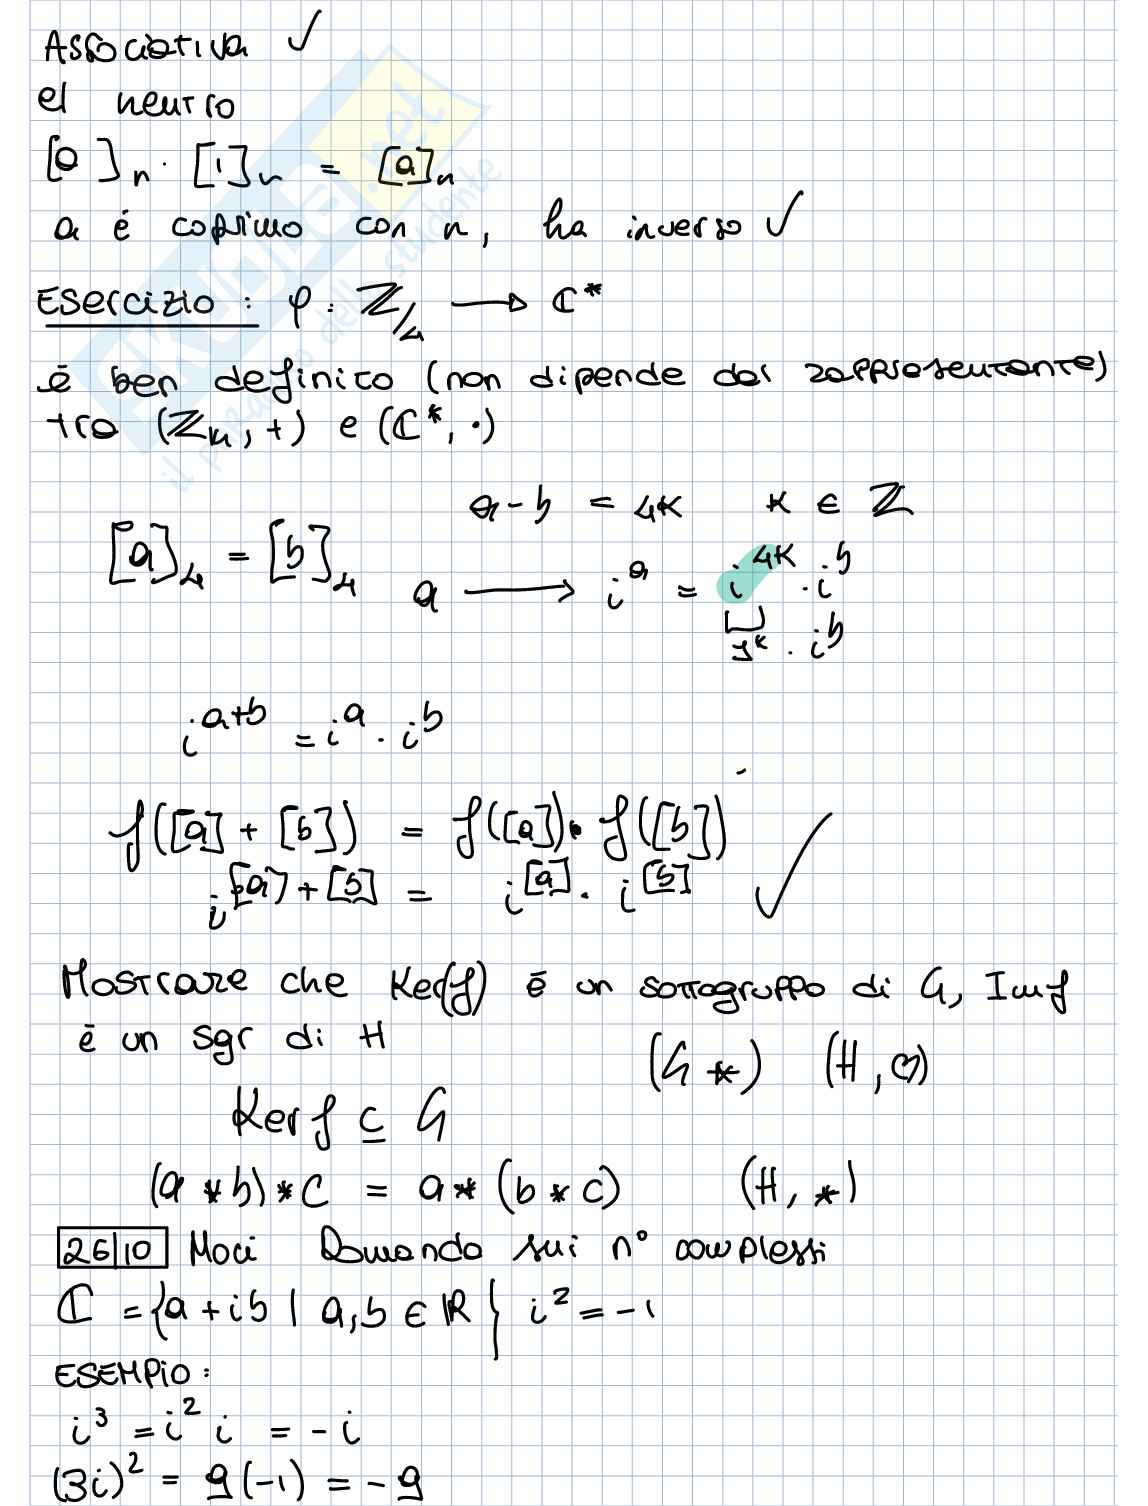 Associativa ✓
el neutro
[a]ₙ · [1]ₙ = [a]ₙ
a é coprimo con n, ha inverso ✓
Esercizio : φ : ℤ/4 → ℂ*
è ben definito (non dipende dal rappresentante)
tra (ℤₙ, +) e (ℂ*, ·)
a - b = 4k k ∈ ℤ
[a]₄ = [b]₄
a → i^a = i^{4k} · i^b
1^k · i^b
i^{a+b} = i^a · i^b
f([a] + [b]) = f([a]) · f([b])
i^{[a]+[b]} = i^{[a]} · i^{[b]} ✓
Mostrare che Ker(f) è un sottogruppo di G, Im f
è un sgr di H
(G *) (H, ♡)
Ker f ⊆ G
(a * b) * c = a * (b * c) (H, *)
26/10 Moci Domanda sui n° complessi
ℂ = {a + ib | a, b ∈ ℝ} i² = -1
ESEMPIO :
i³ = i² i = - i
(3i)² = 9(-1) = -9
SKUOLA.net
il paradiso dello studente